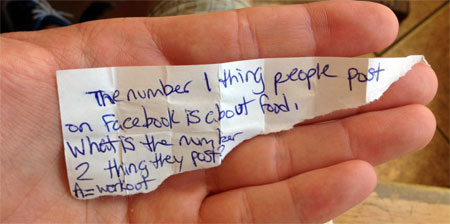 The number 1 thing people post
on Facebook is about food.
What is the number
2 thing they post?
A= workout